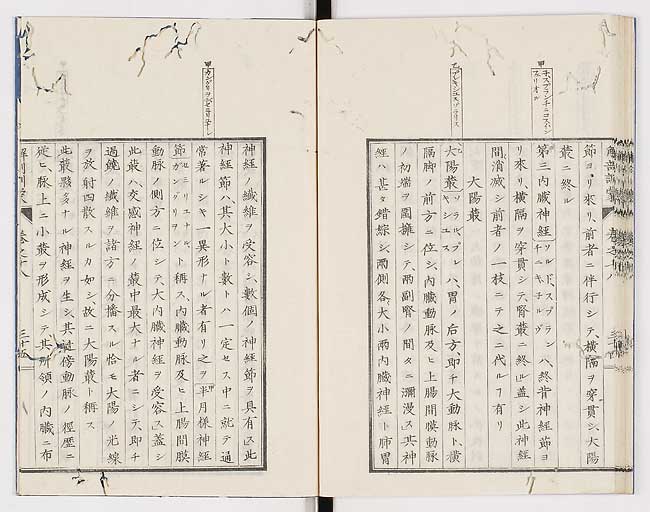 節ヨリ來リ、前者ニ伴行シテ、横隔ヲ穿貫シ、大陽
叢ニ終ル
第三内臓神経 ハ、終背神経節ヨ
リ來リ、横隔ヲ穿貫シテ、腎叢ニ終ル、蓋シ此神経
間消滅シ、前者ノ一枝ニテ之ニ代ルヿ有リ
大陽叢
大陽叢 ハ、胃ノ后方、即チ大動脉ト、横
隔脚ノ前方ニ位シ、内臓動脉及ヒ上腸間膜動脉
ノ初端ヲ圍擁シテ、両副腎ノ間タニ瀰漫ス、其神
経ハ甚タ錯綜シ、兩側各大小兩内臓神経ト肺胃
神経ノ繊維ヲ受容シ、數個ノ神経節ヲ具有ス、此
神経節ハ、其大小ト數トハ一定セス、中ニ就テ通
常著ルシキ一異形ナル者有リ之ヲ半月様神経
節 ト稱ス、内臓動脉及ヒ上腸間膜
動脉ノ側方ニ位シテ、大内臓神経ヲ受容ス、蓋シ
此叢ハ、交感神経ノ叢中最大ナル者ニシテ、即チ
過饒ノ繊維ヲ諸方ニ分播スル恰モ大陽ノ光線
ヲ放射四散スルカ如シ、故ニ大陽叢ト稱ス
此叢夥多ナル神経ヲ生シ、其近傍動脉ノ徑歴ニ
從ヒ、脉上ニ小叢ヲ形成シテ、其所領ノ内臓ニ布